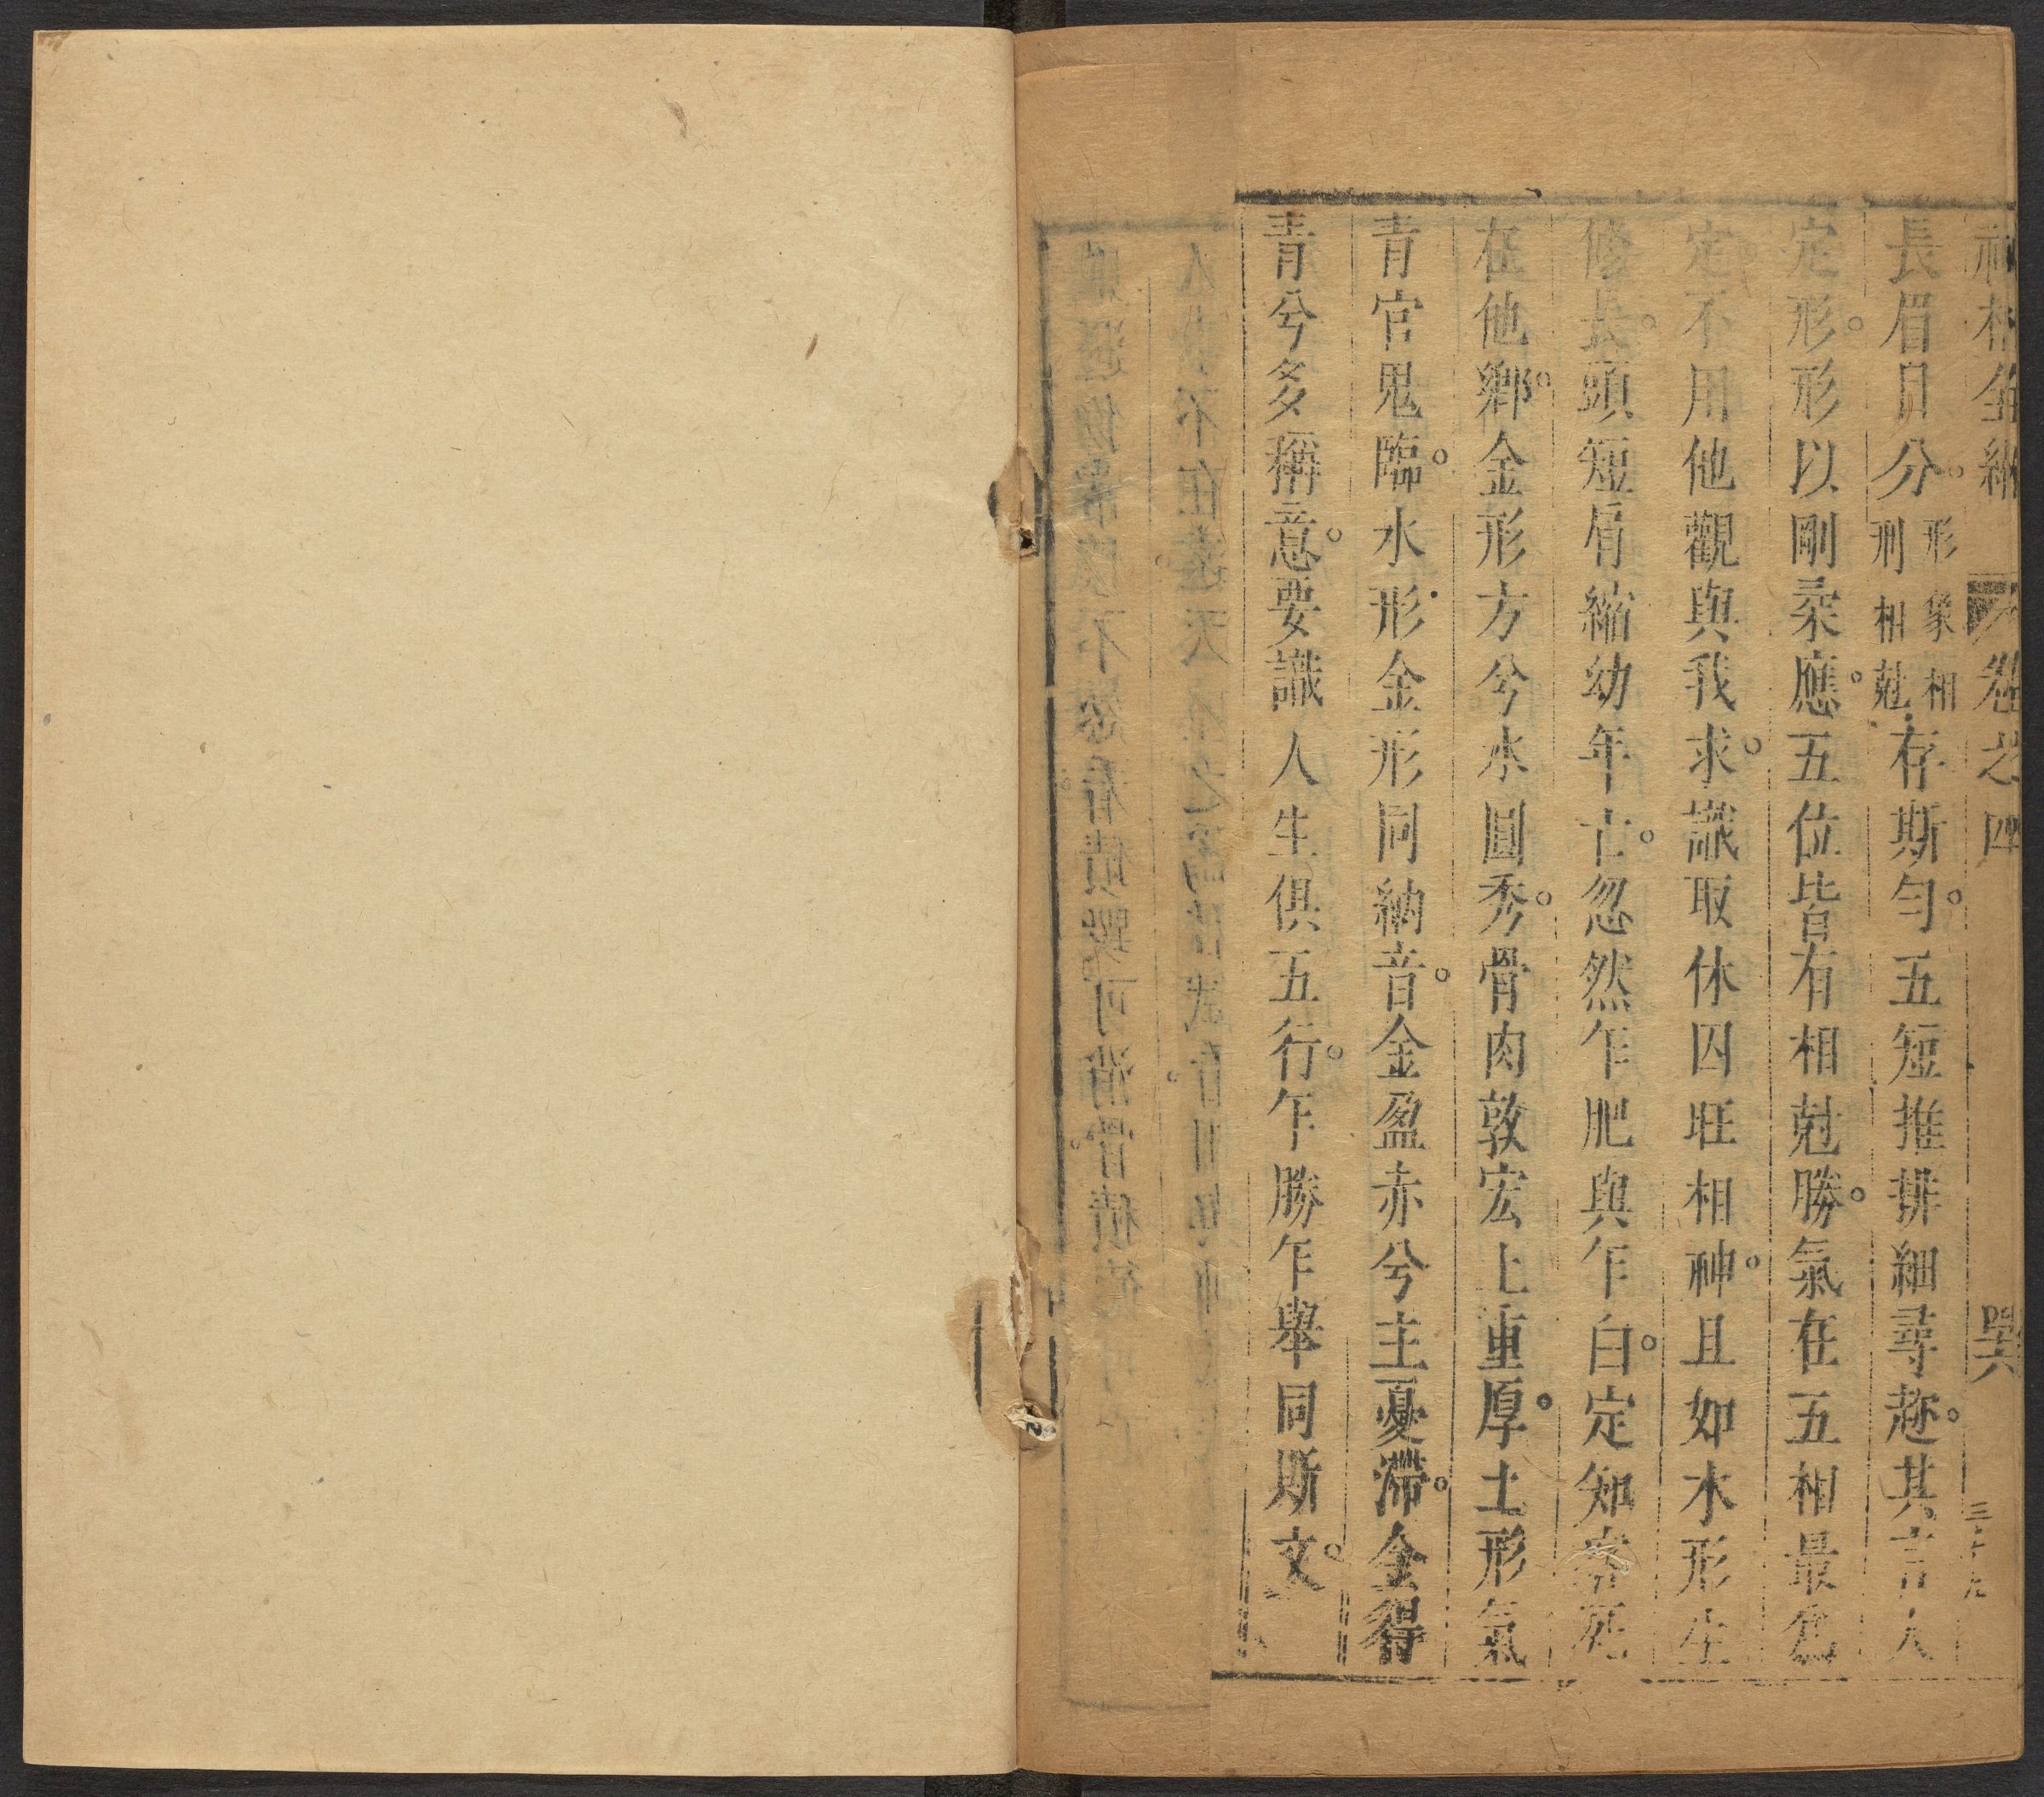 神相全編 卷之四 罢六 三十九
長眉目分。形象相刑相尅存斯勻。五短推排細尋趂。其言人
定形。形以剛柔應。五位皆有相尅勝。氣在五相最爲
定不用他觀與我求。識取休囚旺相神。且如木形生
修長。頭短肩縮幼年亡。忽然乍肥與乍白。定知客死
在他鄉。金形方兮水圓秀。骨肉敦宏上重厚。土形氣
青官鬼臨。水形金形同納音。金盈赤兮主憂滯。金得
青兮多稱意。要識人生俱五行。乍勝乍舉同斯文。